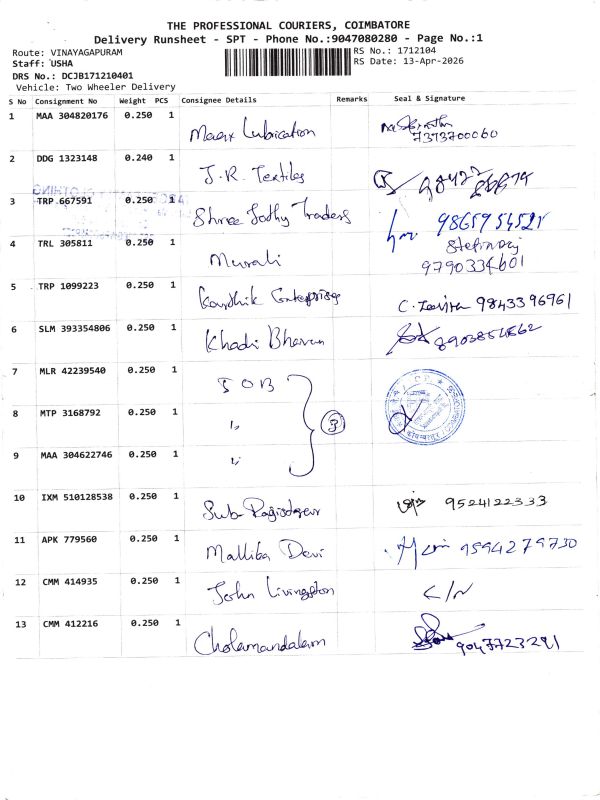 THE PROFESSIONAL COURIERS, COIMBATORE
Delivery Runsheet - SPT - Phone No.:9047080280 - Page No.:1
Route: VINAYAGAPURAM
RS No.: 1712104
Staff: USHA
RS Date: 13-Apr-2026
DRS No.: DCJB171210401
Vehicle: Two Wheeler Delivery
S No Consignment No Weight PCS Consignee Details Remarks Seal & Signature
1 MAA 304820176 0.250 1 Lubrication
7373700060
2 DDG 1323148 0.240 1 J.R. Textiles
3 TRP 667591 0.250 1 Shree Traders
4 TRL 305811 0.250 1 Murali
9790334601
5 TRP 1099223 0.250 1 Karthik Enterprises 9843396961
6 SLM 393354806 0.250 1 Khadi Bhavan 8903854562
7 MLR 42239540 0.250 1 IOB
8 MTP 3168792 0.250 1 " 3
9 MAA 304622746 0.250 1 "
10 IXM 510128538 0.250 1 Sub 9524122333
11 APK 779560 0.250 1 Mallika Devi 9594279730
12 CMM 414935 0.250 1 John Livingston C/N
13 CMM 412216 0.250 1 Cholamandalam 9047723291